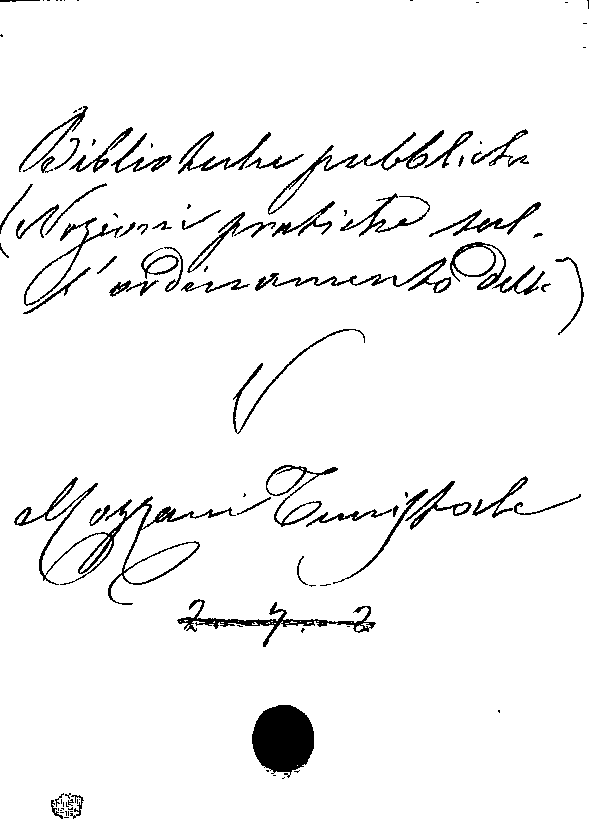 Biblioteche pubbliche
(Nozioni pratiche sul-
l'ordinamento delle)
Mozzani Temistocle
2. 7. 2